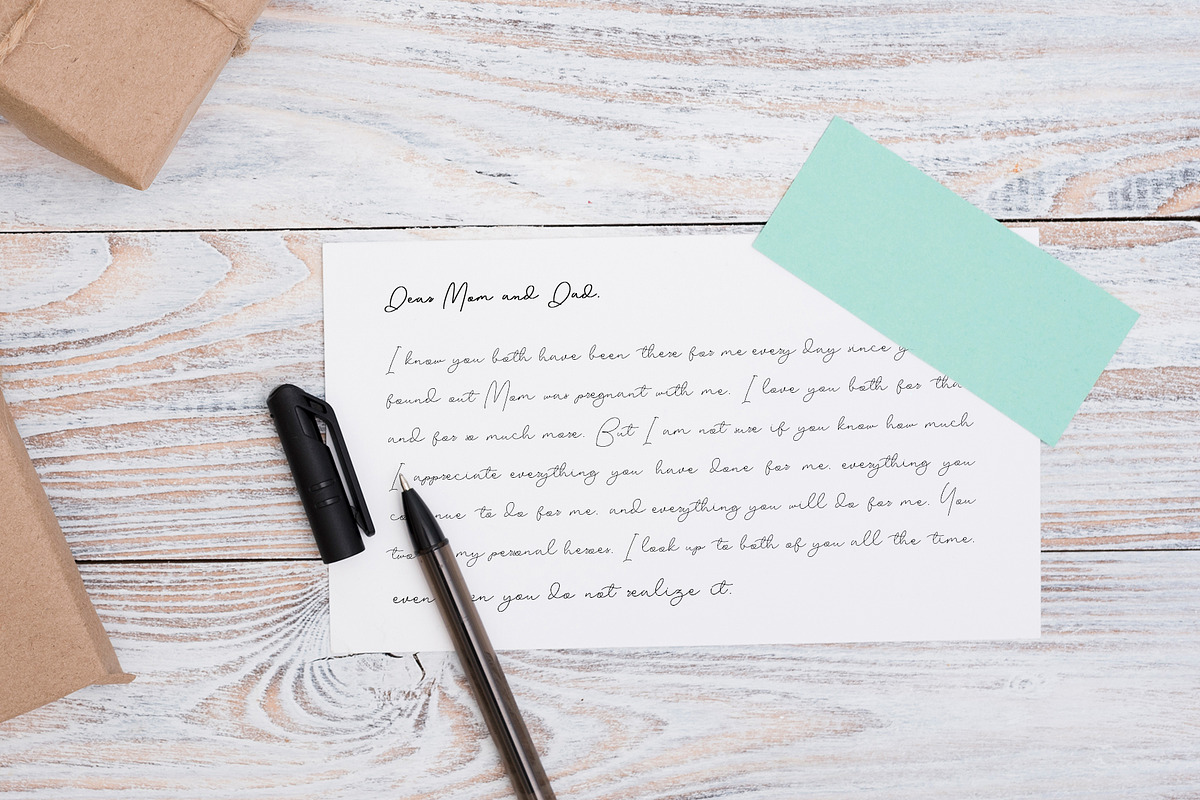 Dear Mom and Dad.
I know you both have been there for me every day since
found out Mom was pregnant with me. I love you both for
and for so much more. But I am not sure if you know how much
I appreciate everything you have done for me. everything you
to do for me. and everything you will do for me. You
two my personal heroes. I look up to both of you all the time.
even you do not realize it.